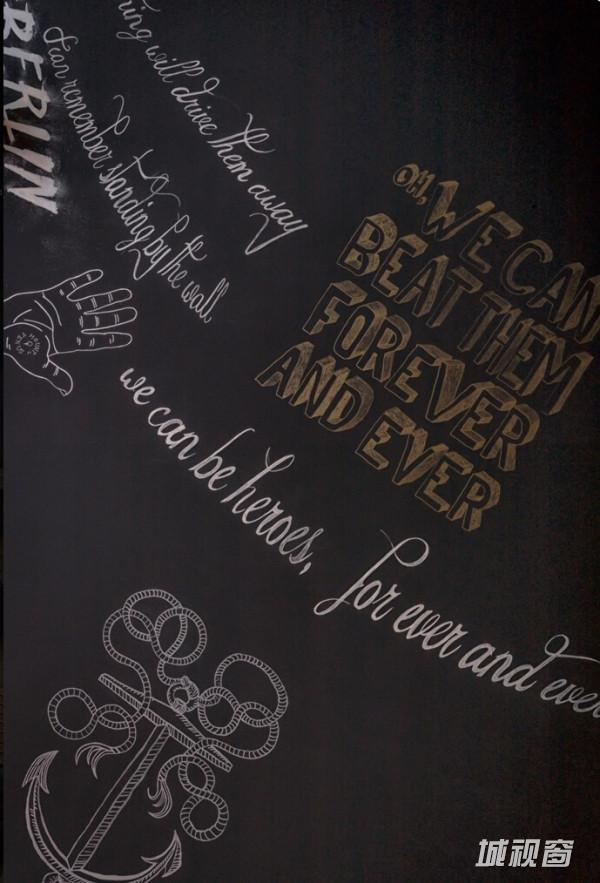 BERLIN
will drive them away
I can remember standing by the wall
OH, WE CAN
BEAT THEM
FOREVER
AND EVER
we can be heroes,
for ever and ever
城视窗